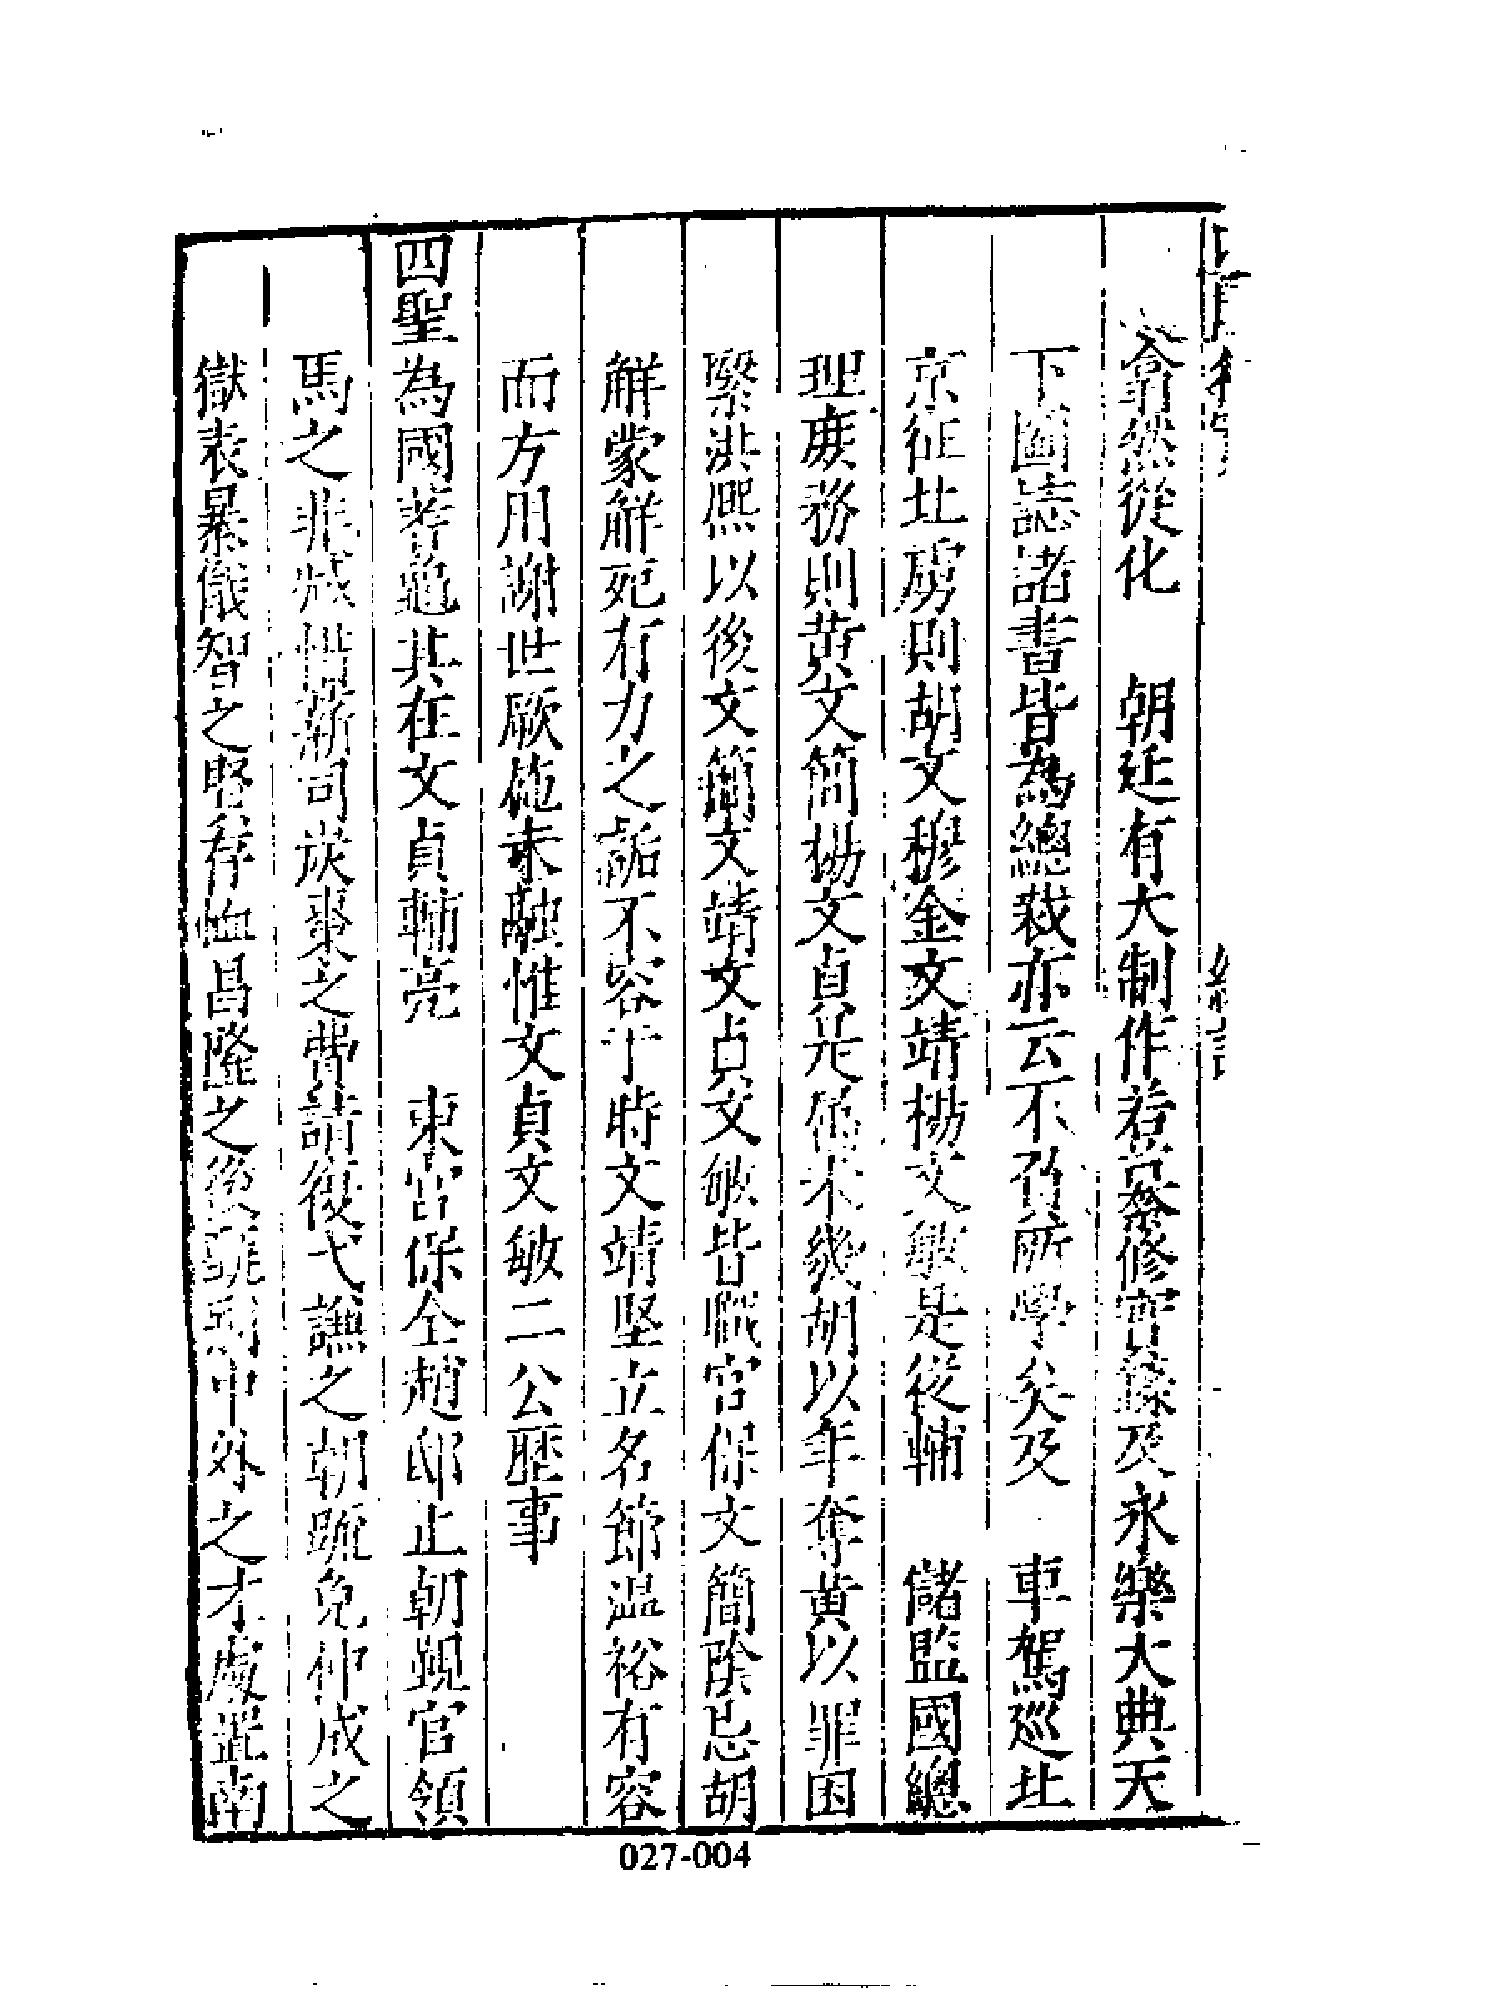 翕然從化　朝廷有大制作若纂修實錄及永樂大典天
下圖誌諸書皆為總裁亦云不負所學矣及　車駕巡北
京征北虜則胡文穆金文靖楊文敏是從輔　儲監國總
理庶務則黃文簡楊文貞是屬未幾胡以年奪黃以罪困
繫洪熙以後文簡文靖文貞文敏皆職宮保文簡陰忌胡
解蒙解死有力之詬不容于時文靖堅立名節溫裕有容
而方用謝世厥施未融惟文貞文敏二公歷事
四聖為國蓍龜其在文貞輔亮　東宮保全趙邸止朝覲官領
馬之非減惜薪司炭棗之費請復弋謙之朝
獄表暴儀智之賢存恤昌隆之後中外之才處置南
027-004